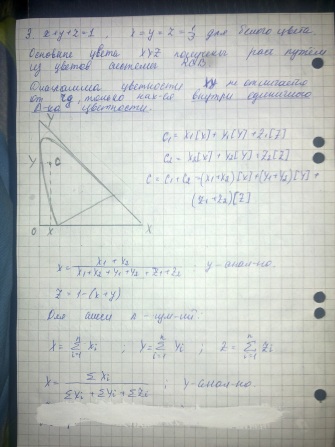 3 x+y+z=1 x=y=z=1/3 для белого цвета.
Основные цвета XYZ получены расч. путём
из цветов системы RGB
Диаграмма цветности xy не отличается
от rg, только нах-ся внутри единичного
Δ-ка цветности.
Y
Y
C
0 X X
C₁ = x₁[X] + y₁[Y] + z₁[Z]
C₂ = x₂[X] + y₂[Y] + z₂[Z]
C = C₁ + C₂ = (x₁+x₂)[X] + (y₁+y₂)[Y] +
(z₁+z₂)[Z]
x = (x₁ + x₂)/(x₁+x₂+y₁+y₂+z₁+z₂) ; y-анал-но.
Z = 1-(x+y)
Для смеси n-
X = Σⁿᵢ₌₁ xᵢ ; Y = Σⁿᵢ₌₁ yᵢ ; Z = Σⁿᵢ₌₁ zᵢ
X = Σxᵢ/(Σxᵢ + Σyᵢ + Σzᵢ) ; y-анал-но.